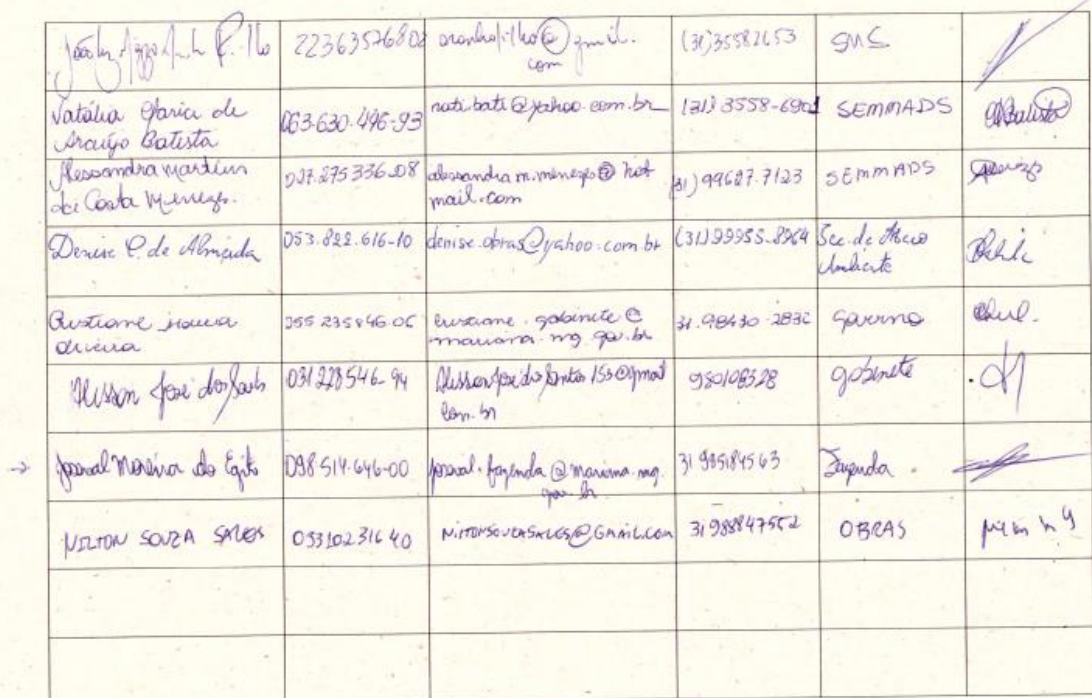 22363526802 aranhafilho@gmail. (31)35582653 SMS
com
Natália Maria de
Araújo Batista 063-630.496-93 nati.bati@yahoo.com.br (31) 3558-6901 SEMMADS
Alessandra Martins
da Costa Menezes. 027.275336-08 alessandra.m.menezes@hot
mail.com (31) 99627.7123 SEMMADS
Denise C. de Almeida 053.822.616-10 denise.obras@yahoo.com.br (31)99955-8964 Sec. de Meio
Ambiente
Cristiane
Oliveira 055 235846.06 gabinete@
mariana.mg.gov.br 31.98430-2832 governo
Alisson José dos Santos 031228546-94 Alissonjosédosantos153@gmail
com.br 980108328 gabinete
Moreira do Egito 098.514.646-00 fazenda@mariana.mg.
gov.br 31 985184563 Fazenda
NILTON SOUZA SALES 0331023164 0 NILTONSOUZASALES@GMAIL.COM 31988847552 OBRAS